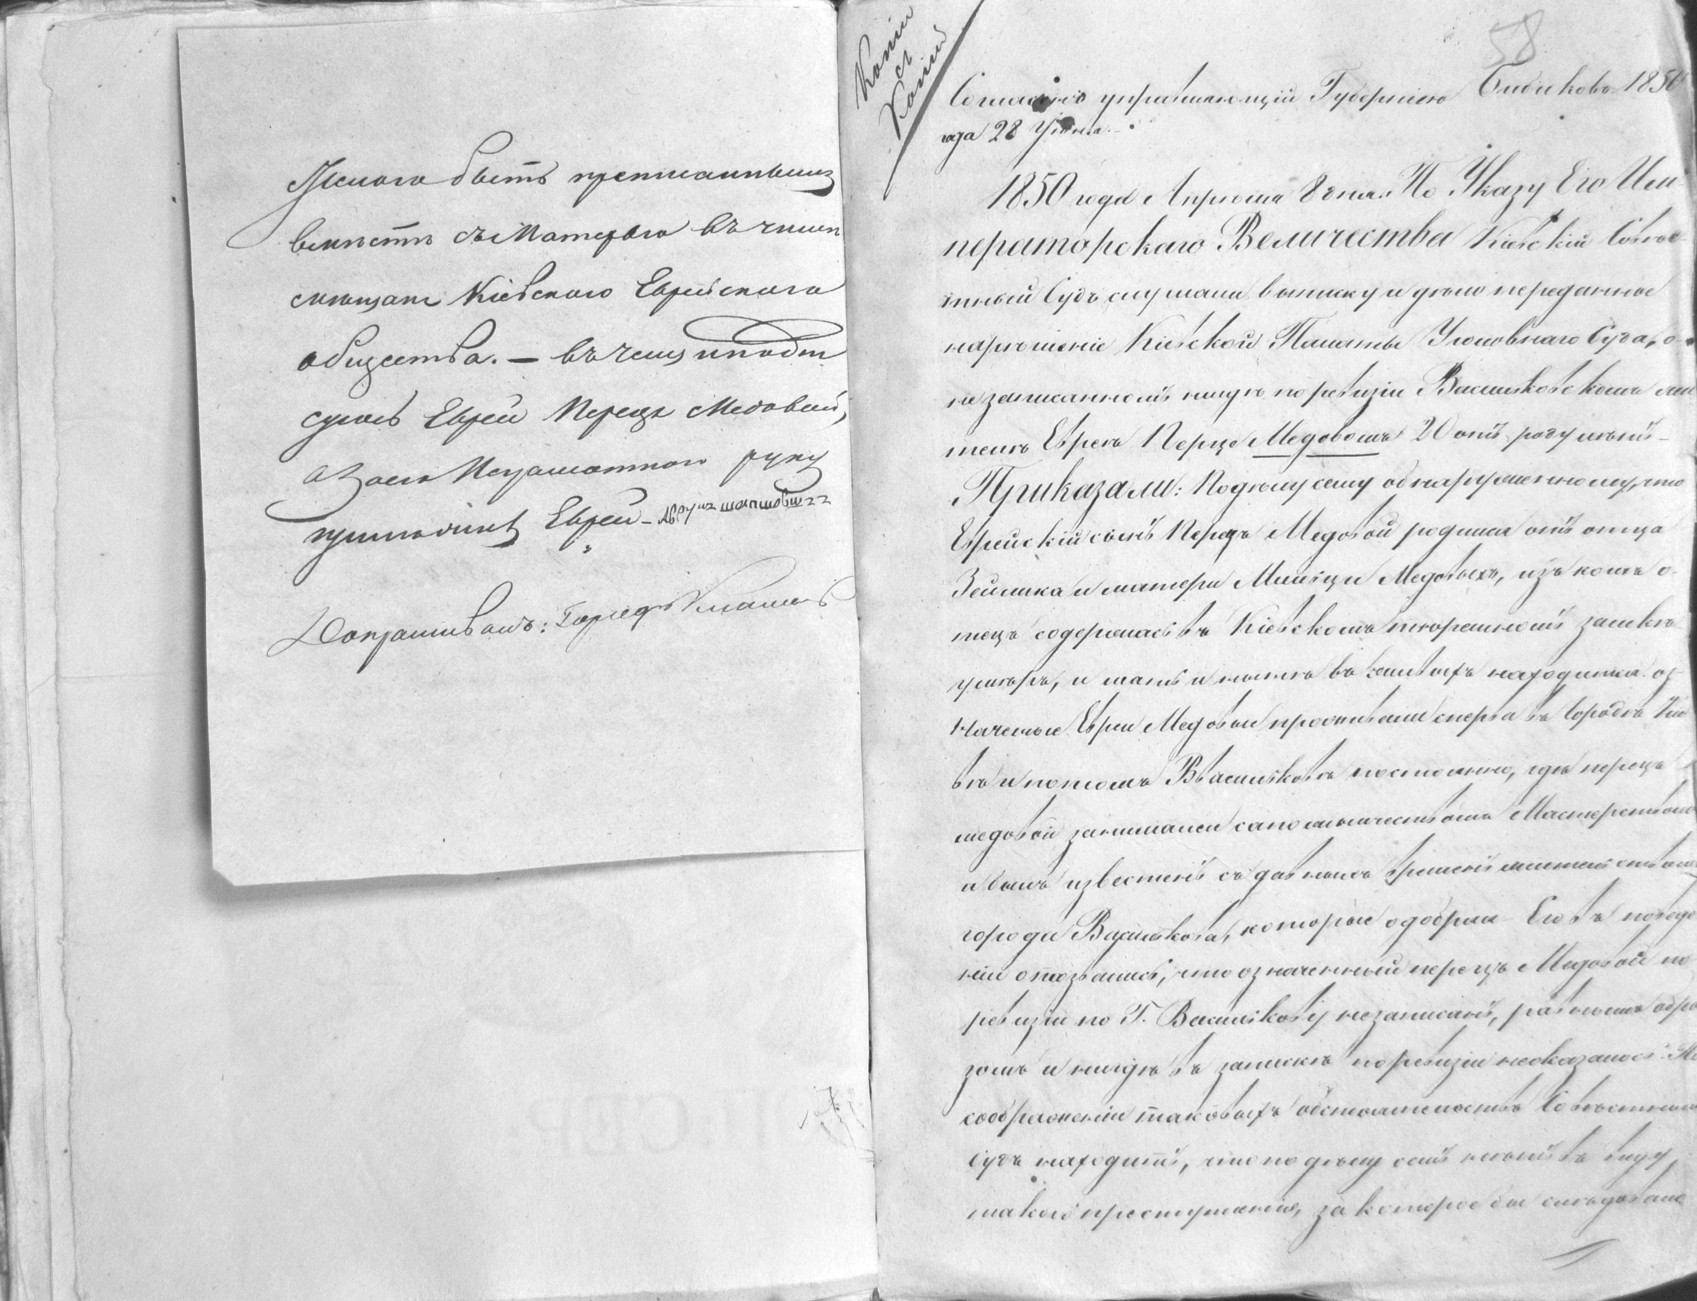 желаго быть приписаннымъ
вместе съ Матерью въ число
мещанъ Кіевского Еврейского
общества. — въ чемъ и подпи
суюсь Еврей Перецъ Медовый,
а за его Неграмотного руку
приложилъ Еврей
Допрашивалъ:
Копія
съ
Копіи
58
Согласенъ управляющій Губерніею Бибиковъ 1850
года 28 Іюня
1850 года Апреля 8 дня. По Указу Его Им-
ператорскаго Величества Кіевскій Совѣс-
тный Судъ слушали выписку и дѣло переданное
на рѣшеніе Кіевской Палаты Уголовнаго Суда, о
не записанномъ нигдѣ по ревизіи Васильковскомъ жи
телѣ Евреѣ Перцѣ Медовомъ 20 лѣтъ роду имѣю-
Приказали: По дѣлу сему обнаруженному, что
Еврейскій сынъ Перецъ Медовой родился отъ отца
Зейлика и матери Медовыхъ, изъ коихъ о-
тецъ содержась въ Кіевскомъ тюремномъ замкѣ
умеръ, и мать и нынѣ въ живыхъ находится. оз-
наченные Евреи Медовые проживали сперва въ Городѣ Кіе
вѣ и потомъ Васильковѣ постоянно, гдѣ перецъ
медовой занимался сапожническимъ Мастерствомъ
и былъ извѣстенъ съ давнихъ временъ жителямъ
города Василькова, которые одобряя Его въ поведе
ніи отозвались, что означенный перецъ Медовой по
ревизіи по Г. Василькову незаписанъ, равнымъ обра
зомъ и нигдѣ въ запискѣ по ревизіи неоказался. По
соображеніи таковыхъ обстоятельствъ Совѣстный
Судъ находитъ, что по дѣлу сему нѣтъ въ виду
такого преступленія, за которое бы слѣдовало